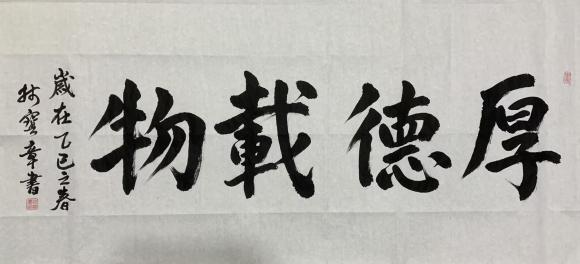 厚德載物
歲在乙巳之春
林寶章書